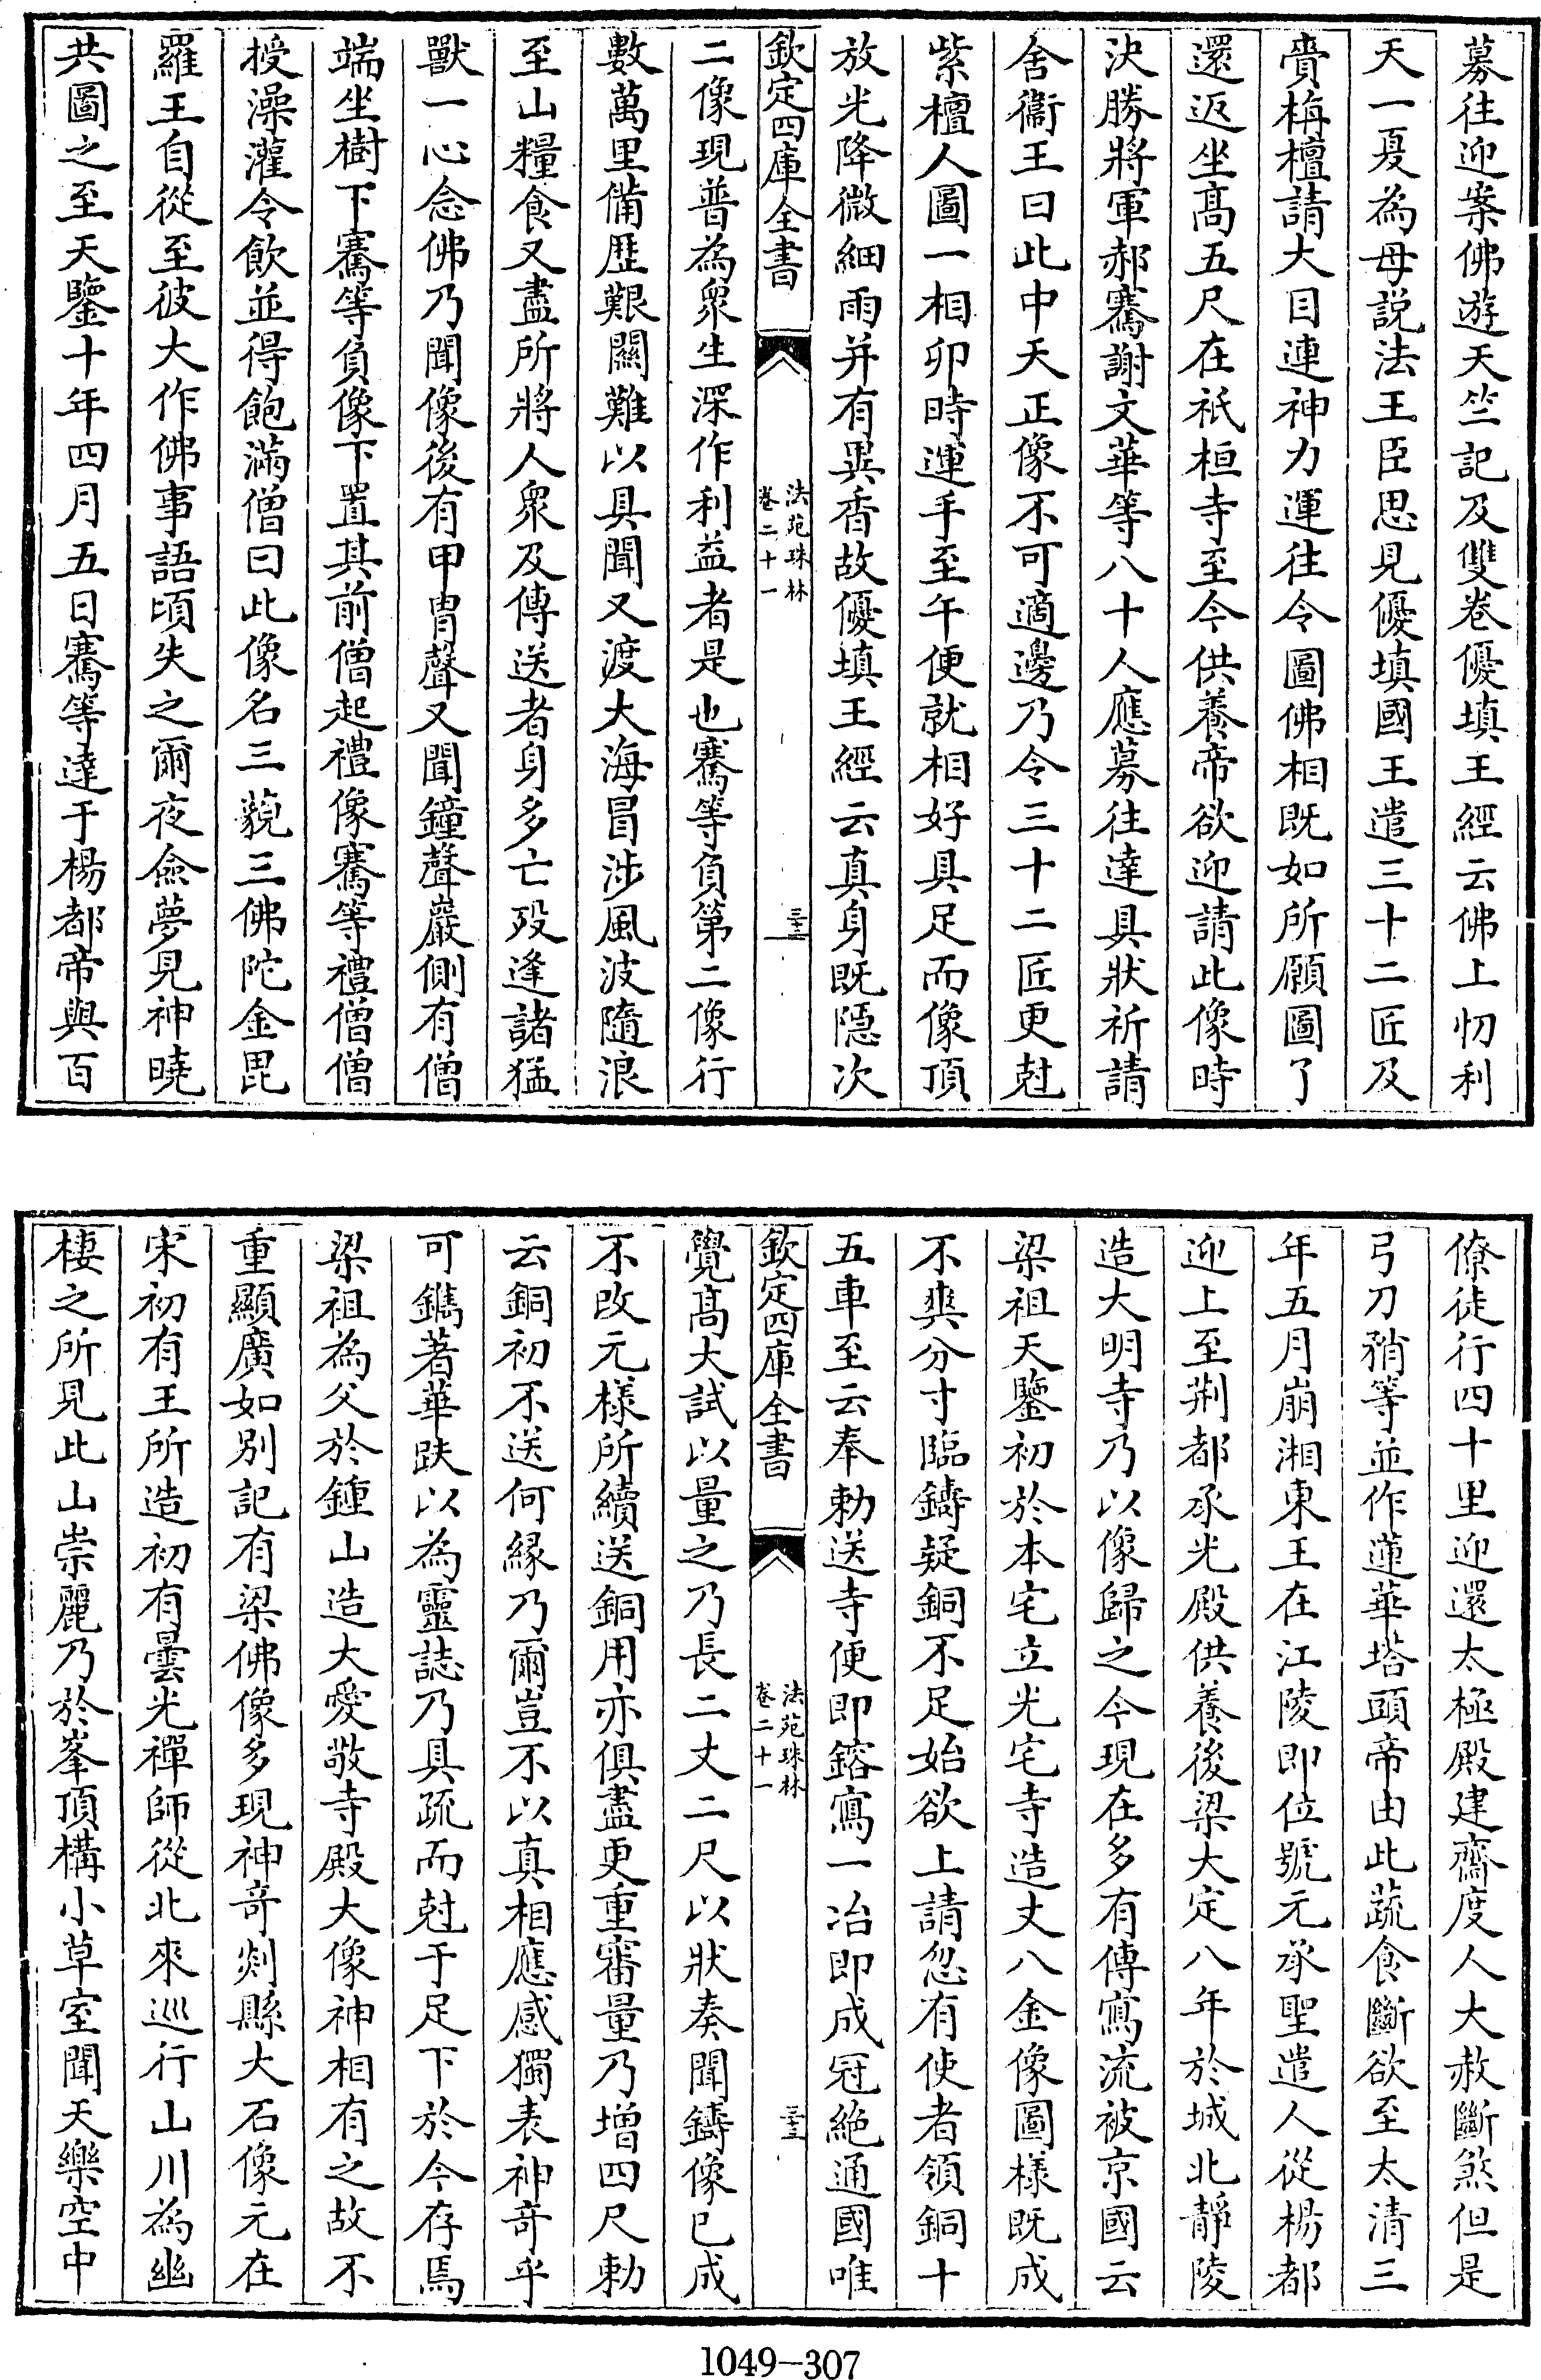 募往迎案佛遊天竺記及雙卷優填王經云佛上忉利
天一夏為母說法王臣思見優填國王遣三十二匠及
賫栴檀請大目連神力運往令圖佛相既如所願圖了
還返坐高五尺在祇桓寺至今供養帝欲迎請此像時
決勝將軍郝騫謝文華等八十人應募往達具狀祈請
舍衞王曰此中天正像不可適邊乃令三十二匠更尅
紫檀人圖一相卯時運手至午便就相好具足而像頂
放光降微細雨并有異香故優填王經云真身既隱次
欽定四庫全書
法苑珠林
卷二十一
三十二
二像現普為衆生深作利益者是也騫等負第二像行
數萬里備歷艱關難以具聞又渡大海冒涉風波隨浪
至山糧食又盡所將人衆及傳送者身多亡歿逢諸猛
獸一心念佛乃聞像後有甲冑聲又聞鐘聲巖側有僧
端坐樹下騫等負像下置其前僧起禮像騫等禮僧僧
授澡灌令飲並得飽滿僧曰此像名三藐三佛陀金毘
羅王自從至彼大作佛事語頃失之爾夜僉夢見神曉
共圖之至天鑒十年四月五日騫等達于楊都帝與百
僚徒行四十里迎還太極殿建齋度人大赦斷煞但是
弓刀矟等並作蓮華塔頭帝由此蔬食斷欲至太清三
年五月崩湘東王在江陵即位號元承聖遣人從楊都
迎上至荆都承光殿供養後梁大定八年於城北靜陵
造大明寺乃以像歸之今現在多有傳寫流被京國云
梁祖天鑒初於本宅立光宅寺造丈八金像圖樣既成
不爽分寸臨鑄疑銅不足始欲上請忽有使者領銅十
五車至云奉勅送寺便即鎔寫一冶即成冠絶通國唯
欽定四庫全書
法苑珠林
卷二十一
三十三
覺高大試以量之乃長二丈二尺以狀奏聞鑄像已成
不改元樣所續送銅用亦俱盡更重審量乃增四尺勅
云銅初不送何緣乃爾豈不以真相應感獨表神竒乎
可鐫著華趺以為靈誌乃具疏而尅于足下於今存焉
梁祖為父於鍾山造大愛敬寺殿大像神相有之故不
重顯廣如別記有梁佛像多現神竒剡縣大石像元在
宋初有王所造初有曇光禪師從北來巡行山川為幽
棲之所見此山崇麗乃於峯頂構小草室聞天樂空中
1049-307